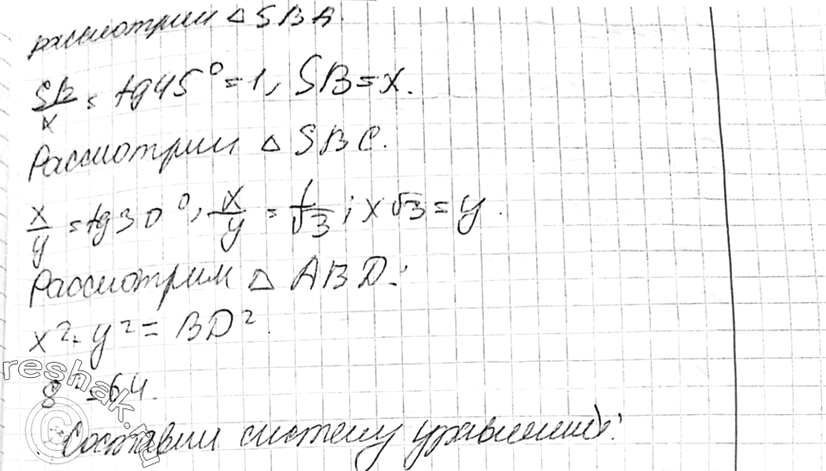 рассмотрим △SBA.
SB/x = tg45° = 1, SB = x.
Рассмотрим △ SBC.
x/y = tg30°, x/y = 1/√3; x√3 = y.
Рассмотрим △ ABD:
x² + y² = BD².
8² = 64.
Составим систему уравнений:
reshak.ru